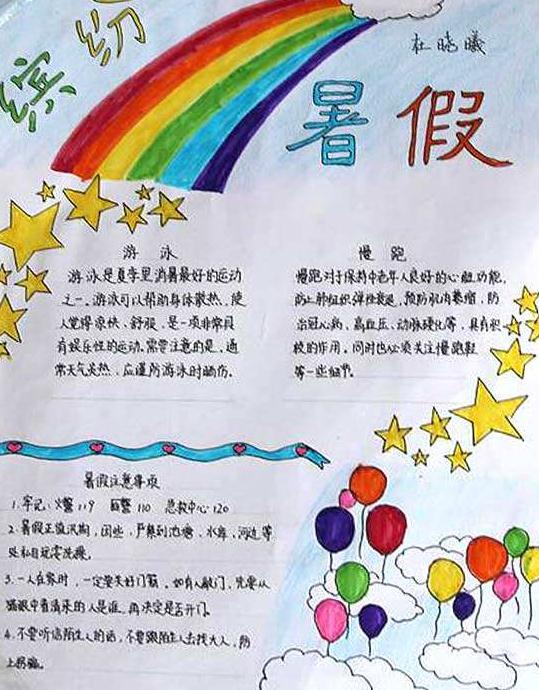 缤纷
杜晓曦
暑假
游泳
游泳是夏季里消暑最好的运动
之一。游泳可以帮助身体散热，使
人觉得凉快、舒服，是一项非常具
有娱乐性的运动。需要注意的是，通
常天气炎热，应谨防游泳时晒伤。
慢跑
慢跑对于保持中老年人良好的心脏功能，
防止肺组织弹性衰退，预防肌肉萎缩，防
治冠心病，高血压，动脉硬化等，具有积
极的作用。同时也必须关注慢跑鞋
等一些细节。
暑假注意事项
1.牢记：火警119 匪警110 急救中心120
2.暑假正值汛期，因此，严禁到池塘、水库、河边等
处私自玩耍洗澡。
3.一人在家时，一定要关好门窗。如有人敲门，先要从
猫眼中看清来的人是谁，再决定是否开门。
4.不要听信陌生人的话，不要跟陌生人去找大人，防
上拐骗。